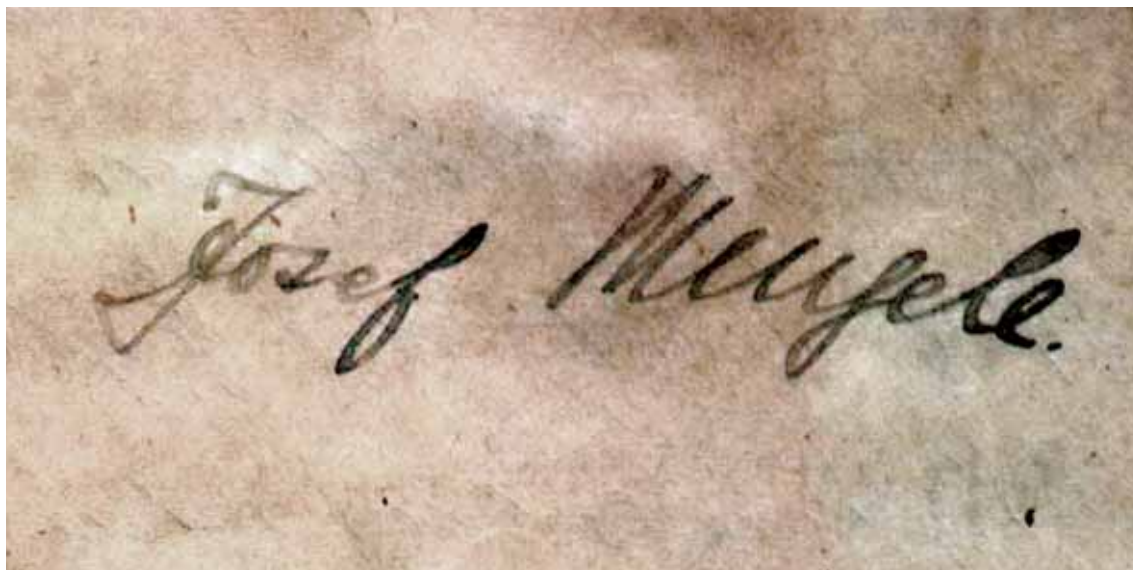 Josef Mengele.